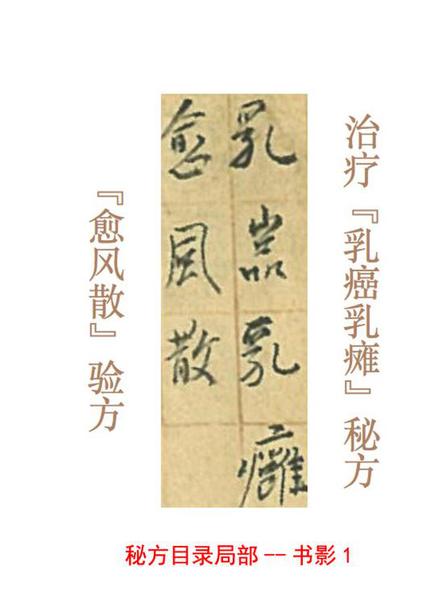 治疗『乳癌乳瘫』秘方
乳嵓乳
愈風散
『愈风散』验方
秘方目录局部--书影1